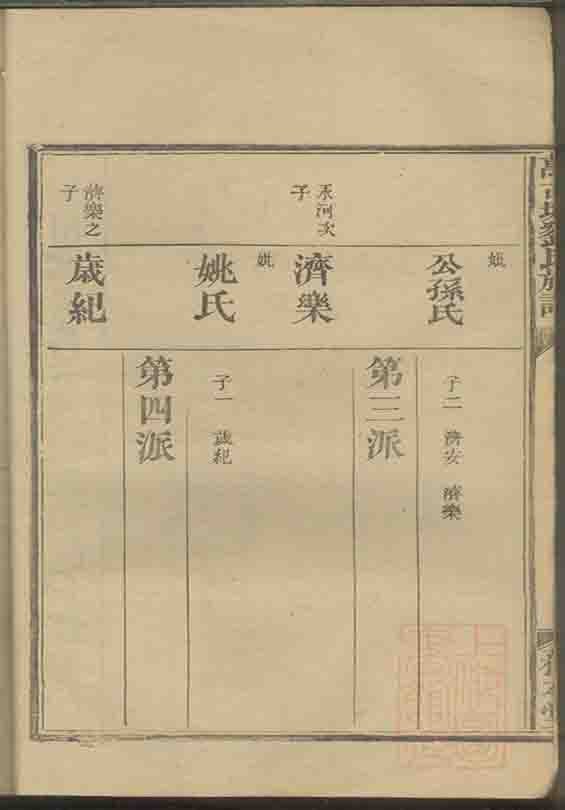 妣
公孫氏
子二 濟安 濟樂
第三派
永河次子
濟樂
妣
姚氏
子一 歲紀
第四派
濟樂之子
歲紀